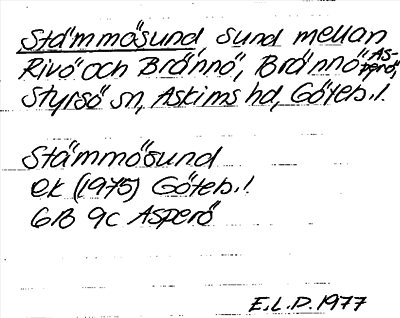 Stämmösund, sund mellan
Rivö och Brännö, Brännö-Asperö,
Styrsö sn, Askims hd, Göteb.l.
Stämmösund
ek (1975) Göteb.l.
6B 9c Asperö
E.L.D. 1977